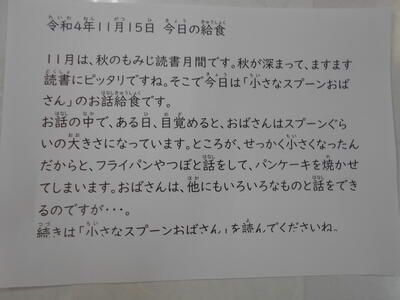 令和4年11月15日 今日の給食
11月は、秋のもみじ読書月間です。秋が深まって、ますます
読書にピッタリですね。そこで今日は「小さなスプーンおば
さん」のお話給食です。
お話の中で、ある日、目覚めると、おばさんはスプーンぐら
いの大きさになっています。ところが、せっかく小さくなったん
だからと、フライパンやつぼと話をして、パンケーキを焼かせ
てしまいます。おばさんは、他にもいろいろなものと話をでき
るのですが・・・。
続きは「小さなスプーンおばさん」を読んでくださいね。